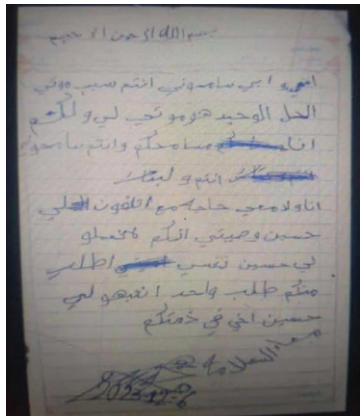 بسم الله الرحمن الرحيم
امي و ابي سامحوني انتم سبب موتي
الحل الوحيد هو موتي لي ولكم
انا مسامحكم وانتم سامحو
انتم و لبنات
انا ولا معي حاجه مع اتلفون
حسين وصيتي انكم
لي حسين نفسي اطلب
منكم طلب واحد انتبهو لي
حسين اخي في ذمتكم
مع السلامه
2023-12-6